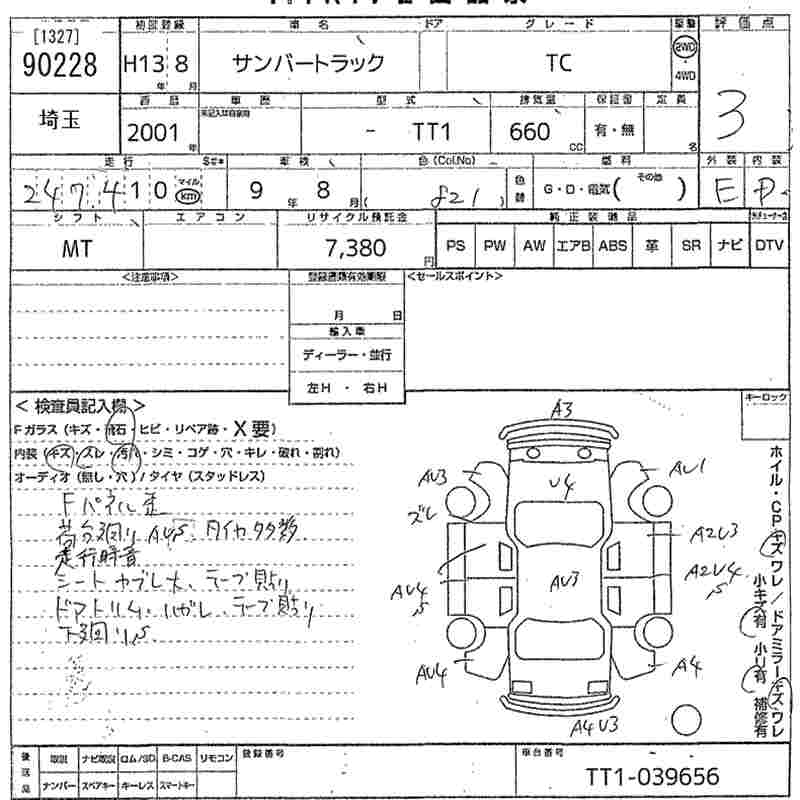 初回登録 車名 ドア グレード 駆動 評価点
[1327]
90228 H13年 8月 サンバートラック TC 2WD・4WD 3
埼玉 西暦 車歴 型式 排気量 保証書 定員
2001年 - TT1 660cc 有・無 名
走行 車検 色(Col.No) 燃料 外装 内装
247410 マイル km 9年 8月 ( 821 ) 色替 G・D・電気( その他 ) E D
シフト エアコン リサイクル預託金 純正装備品
MT 7,380円 PS PW AW エアB ABS 革 SR ナビ DTV
<注意事項> 登録書類有効期限 <セールスポイント>
月 日
輸入車
ディーラー・並行
左H ・ 右H
<検査員記入欄> キーロック
Fガラス(キズ・飛石・ヒビ・リペア跡・X要)
内装(キズ・スレ・汚れ・シミ・コゲ・穴・キレ・破れ・割れ)
オーディオ(無し・穴)/タイヤ(スタッドレス)
Fパネル歪
荷台廻りAUS
走行時音
シートカブレ大、テープ貼り
ドアトリムハガレ、テープ貼り
下廻りS
A3
U4
AU3
ズレ
AU1
A2U3
AU4
S
AU3
A2U4
S
AU4
A4
A4U3
ホイル・CPキズワレ/ドアミラーキズワレ
小キズ有 小U有 補修有
後送品 取説 ナビ取説 ロム/SD B-CAS リモコン 登録番号 車台番号
ナンバー スペアキー キーレス スマートキー TT1-039656